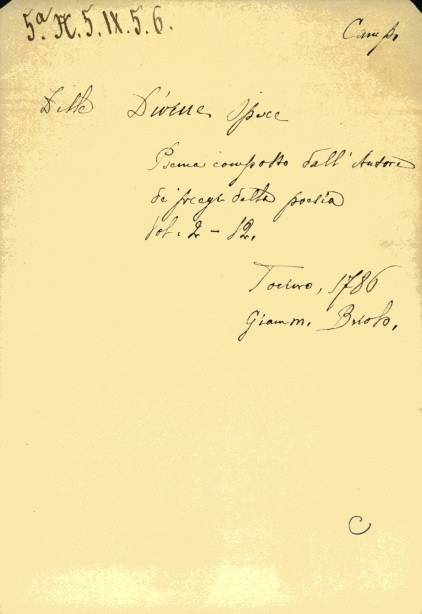 5.ª H. 5. IX. 5. 6.
Camp.
Delle Divine Opere
Poema composto dall'Autore
de' pregi della poesia
Vol. 2 - 12.
Torino, 1786
Giamm. Briolo.
C